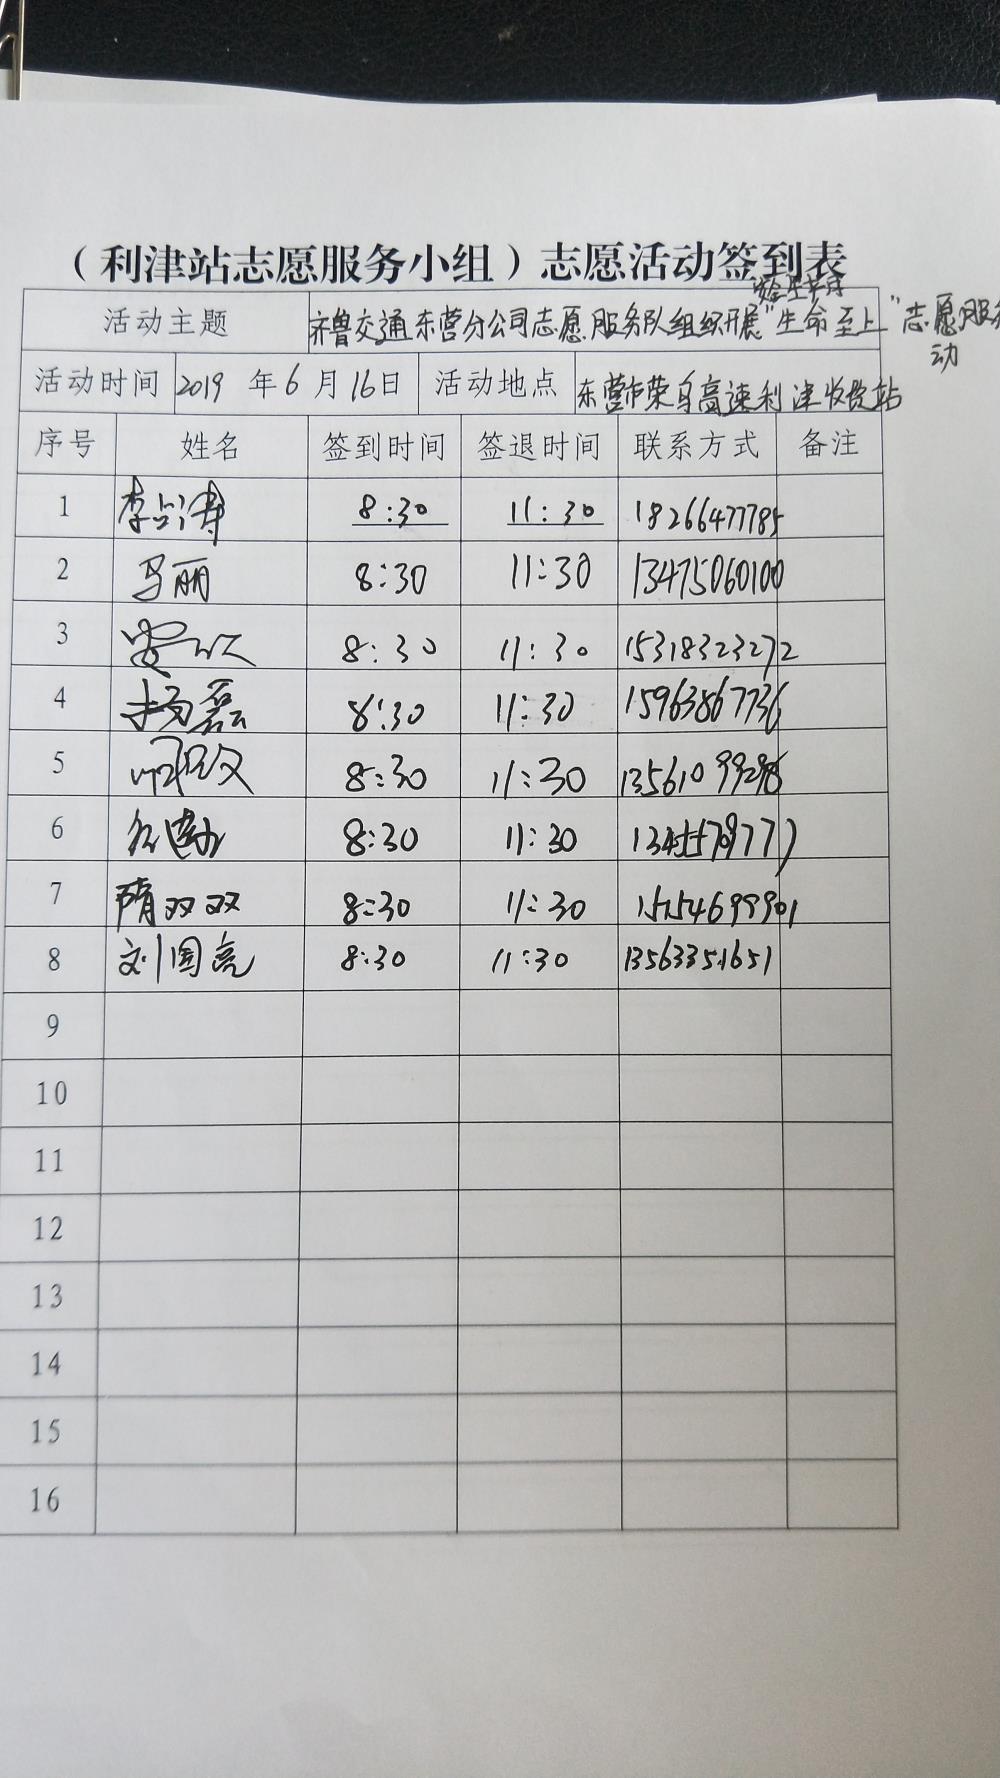 （利津站志愿服务小组）志愿活动签到表
活动主题 齐鲁交通东营分公司志愿服务队组织开展"生命至上"志愿服务
动
活动时间 2019 年 6 月 16 日 活动地点 东营市荣乌高速利津收费站
序号 姓名 签到时间 签退时间 联系方式 备注
1 李占涛 8:30 11:30 18266477785
2 马丽 8:30 11:30 13475060100
3 8:30 11:30 15318323272
4 杨磊 8:30 11:30 15963867736
5 8:30 11:30
6 8:30 11:30
7 隋双双 8:30 11:30 15154699901
8 刘国亮 8:30 11:30 13563351651
9
10
11
12
13
14
15
16